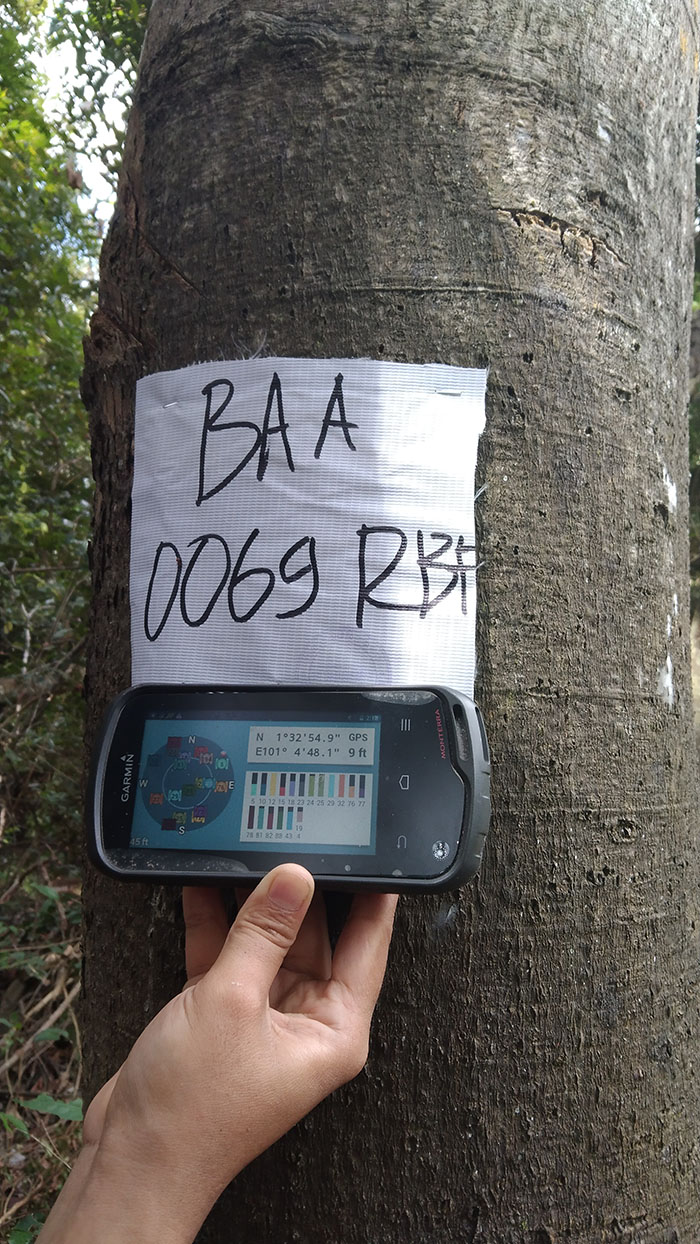 BAA
0069 RBF
GARMIN
MONTERRA
N 1°32'54.9" GPS
E101° 4'48.1" 9 ft
N
W
E
S
45 ft
5 10 12 15 18 23 24 25 29 32 76 77
28 81 82 89 43 4